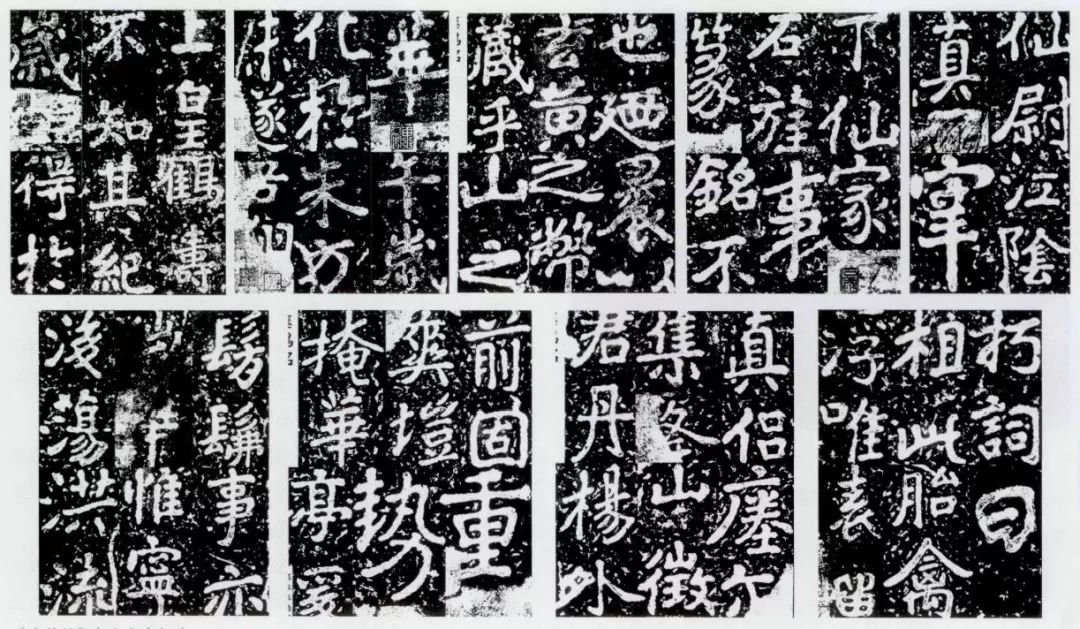 上皇鶴壽
不知其紀
歲得於
華午歲
化於朱方
未遂吾翔
也廼裹以
玄黃之幣
藏乎山之
下仙家
石旌事
篆銘不
仙尉江陰
真宰
髣髴事亦
惟寧
後蕩洪流
前固重
爽塏勢
掩華亭爰
真侶瘞尔
集山徵
君丹楊外
朽詞曰
相此胎禽
浮唯表留